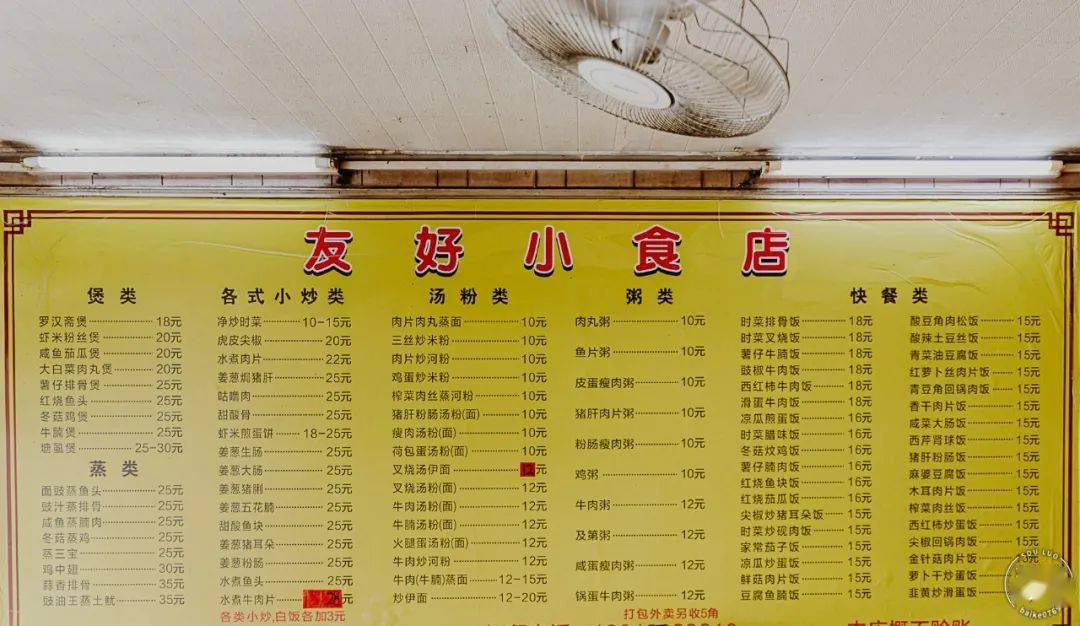 友好小食店
煲类
罗汉斋煲 18元
虾米粉丝煲 20元
咸鱼茄瓜煲 20元
大白菜肉丸煲 20元
薯仔排骨煲 25元
红烧鱼头 25元
冬菇鸡煲 25元
牛腩煲 25元
塘虱煲 25-30元
蒸类
面豉蒸鱼头 25元
豉汁蒸排骨 25元
咸鱼蒸腩肉 25元
冬菇蒸鸡 25元
蒸三宝 25元
鸡中翅 30元
蒜香排骨 35元
豉油王蒸土鱿 35元
各式小炒类
净炒时菜 10-15元
虎皮尖椒 20元
水煮肉片 22元
姜葱焗猪肝 25元
咕噜肉 25元
甜酸骨 25元
虾米煎蛋饼 18-25元
姜葱生肠 25元
姜葱大肠 25元
姜葱猪脷 25元
姜葱五花腩 25元
甜酸鱼块 25元
姜葱猪耳朵 25元
姜葱粉肠 25元
水煮鱼头 25元
水煮牛肉片 28元
各类小炒,白饭各加3元
汤粉类
肉片肉丸蒸面 10元
三丝炒米粉 10元
肉片炒河粉 10元
鸡蛋炒米粉 10元
榨菜肉丝蒸河粉 10元
猪肝粉肠汤粉(面) 10元
瘦肉汤粉(面) 10元
荷包蛋汤粉(面) 10元
叉烧汤伊面 12元
叉烧汤粉(面) 12元
牛肉汤粉(面) 12元
牛腩汤粉(面) 12元
火腿蛋汤粉(面) 12元
牛肉炒河粉 12元
牛肉(牛腩)蒸面 12-15元
炒伊面 12-20元
粥类
肉丸粥 10元
鱼片粥 10元
皮蛋瘦肉粥 10元
猪肝肉片粥 10元
粉肠瘦肉粥 10元
鸡粥 10元
牛肉粥 12元
及第粥 12元
咸蛋瘦肉粥 12元
锅蛋牛肉粥 12元
打包外卖另收5角
快餐类
时菜排骨饭 18元
时菜叉烧饭 18元
薯仔牛腩饭 18元
豉椒牛肉饭 18元
西红柿牛肉饭 18元
滑蛋牛肉饭 18元
凉瓜煎蛋饭 16元
时菜腊味饭 16元
冬菇炆鸡饭 16元
薯仔腩肉饭 16元
红烧鱼块饭 16元
红烧茄瓜饭 16元
尖椒炒猪耳朵饭 15元
时菜炒砚肉饭 15元
家常茄子饭 15元
凉瓜炒蛋饭 15元
鲜菇肉片饭 15元
豆腐鱼腩饭 15元
酸豆角肉松饭 15元
酸辣土豆丝饭 15元
青菜油豆腐饭 15元
红萝卜丝肉片饭 15元
青豆角回锅肉饭 15元
香干肉片饭 15元
咸菜大肠饭 15元
西芹肾球饭 15元
猪肝粉肠饭 15元
麻婆豆腐饭 15元
木耳肉片饭 15元
榨菜肉丝饭 15元
西红柿炒蛋饭 15元
尖椒回锅肉饭 15元
金针菇肉片饭
萝卜干炒蛋饭
韭黄炒滑蛋饭
本店概不赊账
SOU LUO
baike0769